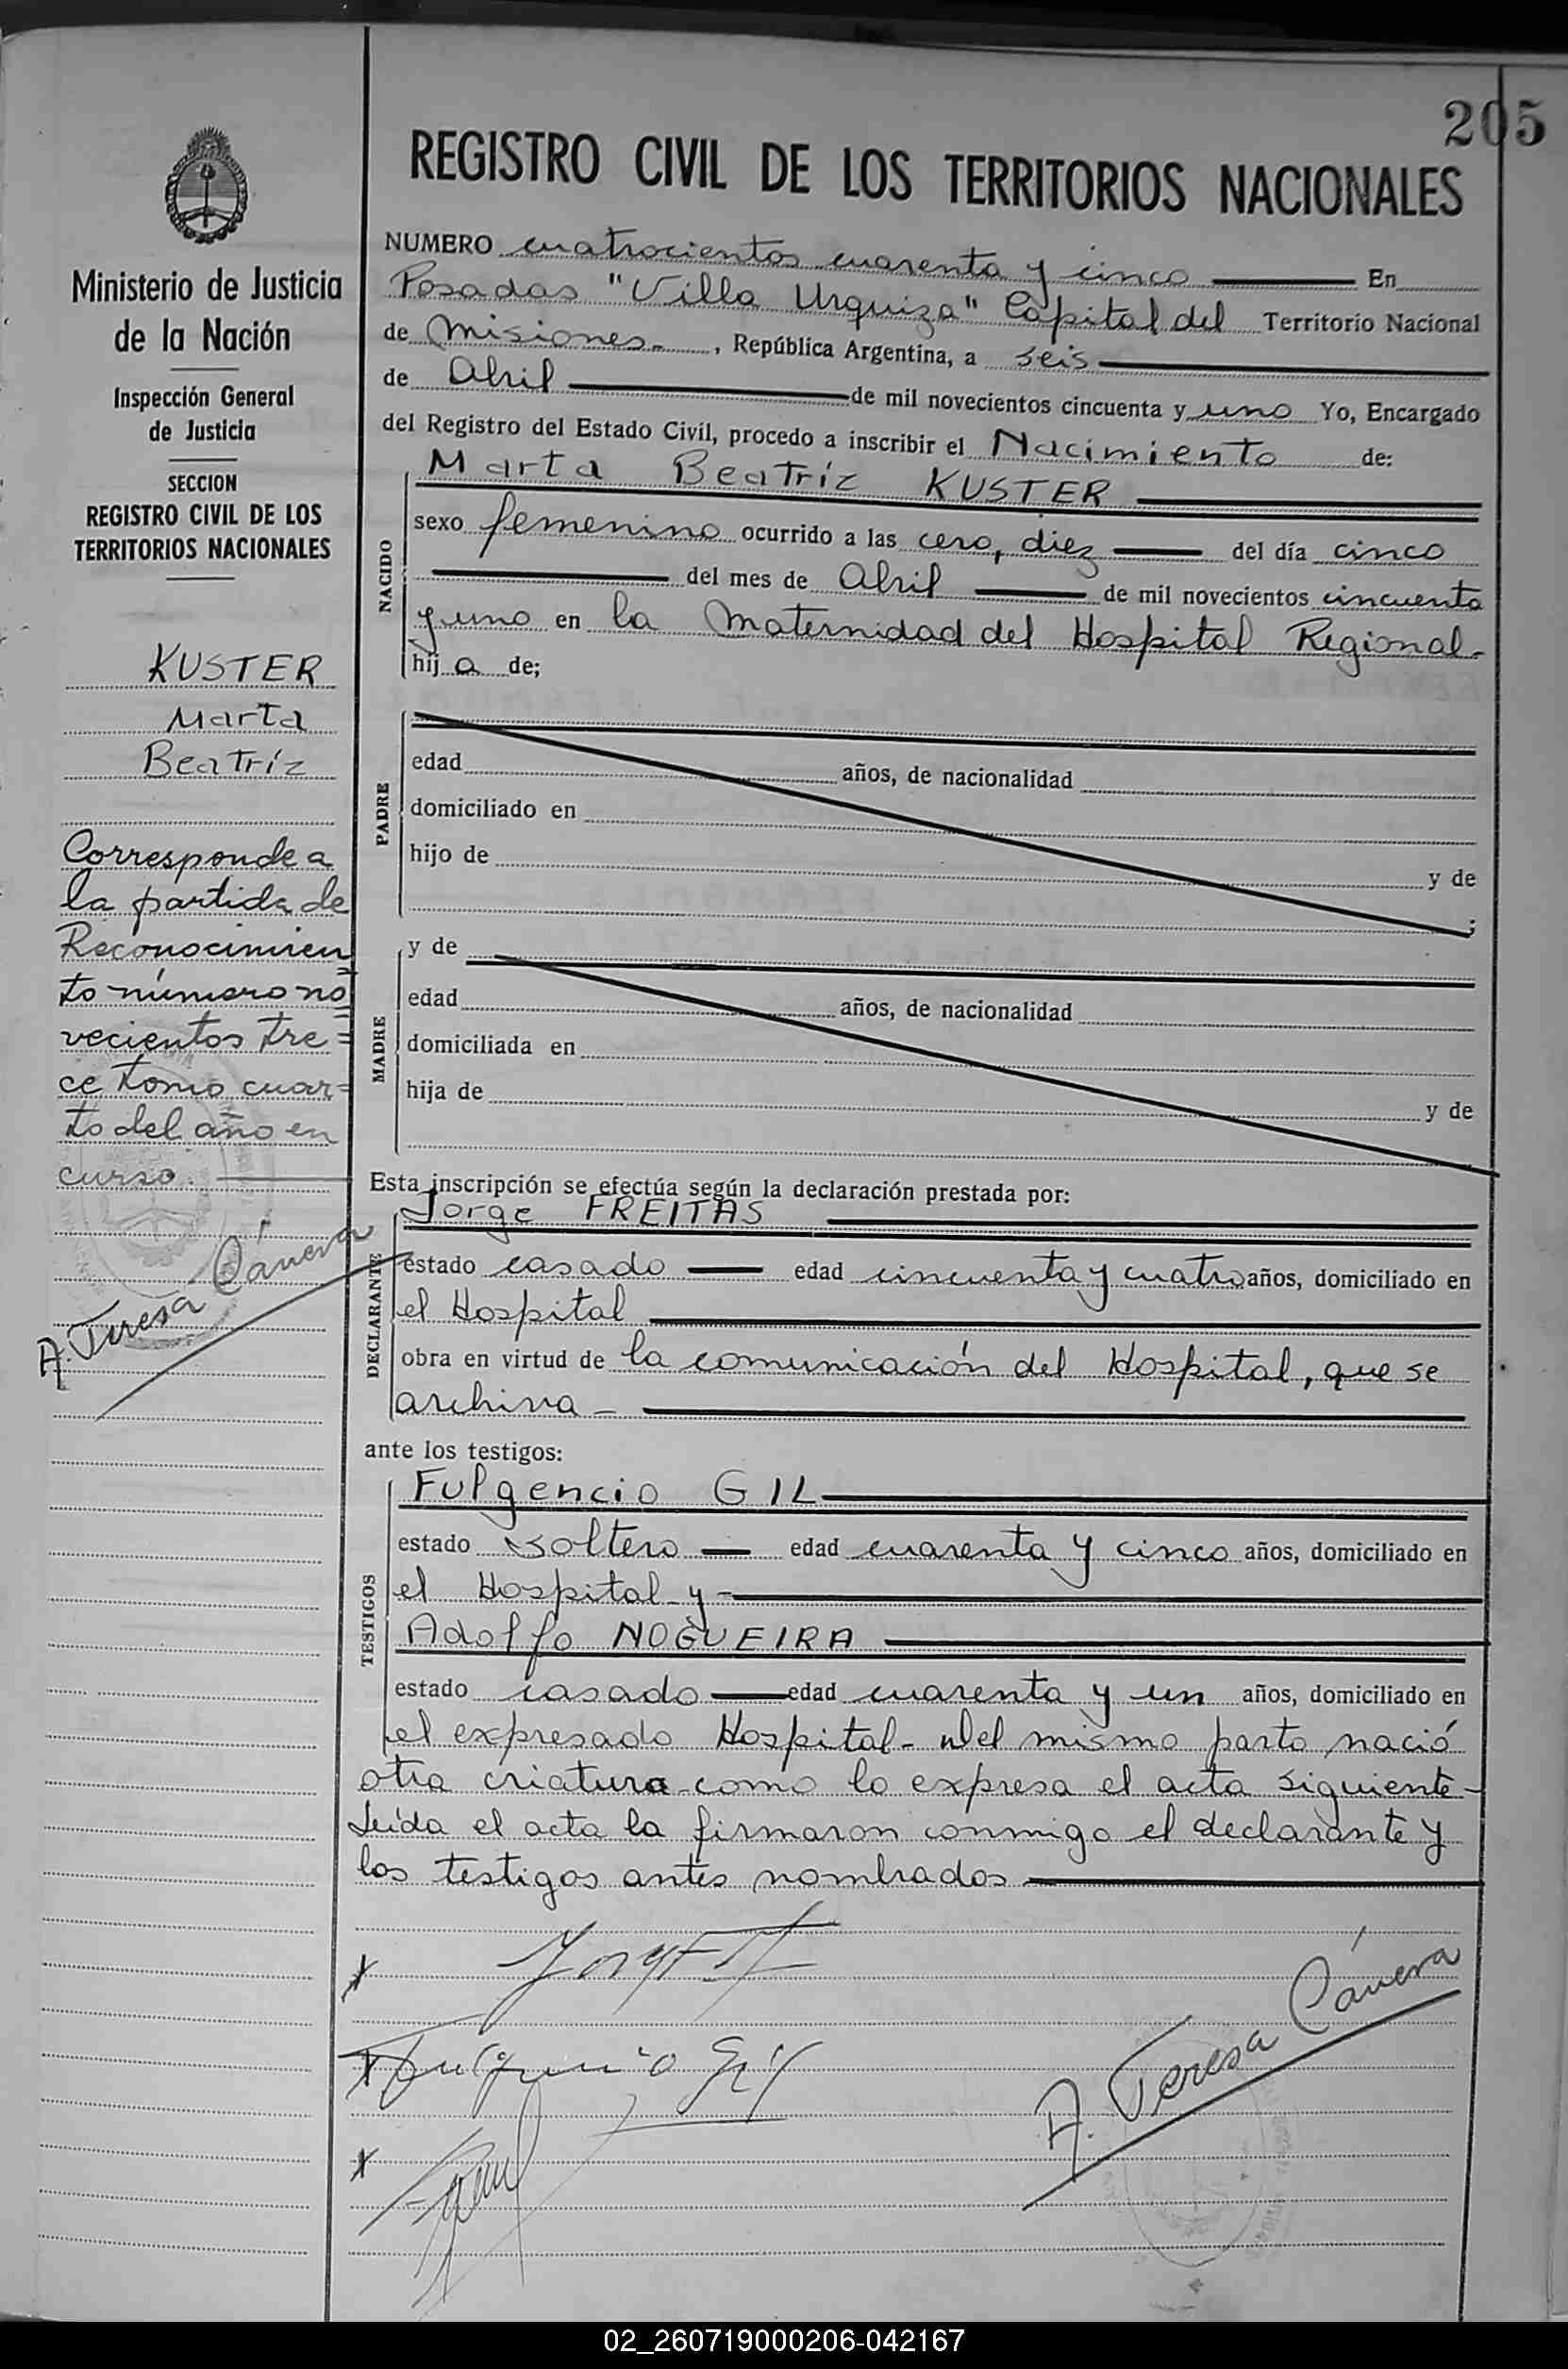 205
REGISTRO CIVIL DE LOS TERRITORIOS NACIONALES
Ministerio de Justicia
de la Nación
Inspección General
de Justicia
SECCION
REGISTRO CIVIL DE LOS
TERRITORIOS NACIONALES
KUSTER
Marta
Beatríz
Corresponde a
la partida de
Reconocimien
to número no
vecientos tre=
ce tomo cuar=
to del año en
curso.
A. Teresa Cánera
NUMERO cuatrocientos cuarenta y cinco En
Posadas "Villa Urquiza" Capital del Territorio Nacional
de Misiones-, República Argentina, a seis
de Abril de mil novecientos cincuenta y uno Yo, Encargado
del Registro del Estado Civil, procedo a inscribir el Nacimiento de:
NACIDO
Marta Beatríz KUSTER
sexo femenino ocurrido a las cero, diez del día cinco
del mes de Abril de mil novecientos cincuenta
y uno en la Maternidad del Hospital Regional-
hij a de;
PADRE
edad años, de nacionalidad
domiciliado en
hijo de y de
;
MADRE
y de
edad años, de nacionalidad
domiciliada en
hija de y de
Esta inscripción se efectúa según la declaración prestada por:
DECLARANTE
Jorge FREITAS
estado casado edad cincuenta y cuatro años, domiciliado en
el Hospital
obra en virtud de la comunicación del Hospital, que se
archiva-
ante los testigos:
TESTIGOS
Fulgencio GIL
estado soltero edad cuarenta y cinco años, domiciliado en
el Hospital y-
Adolfo NOGUEIRA
estado casado edad cuarenta y un años, domiciliado en
el expresado Hospital- Del mismo parto nació
otra criatura como lo expresa el acta siguiente-
Leída el acta la firmaron conmigo el declarante y
los testigos antes nombrados
Fulgencio Gil
A. Teresa Cánera
02_260719000206-042167